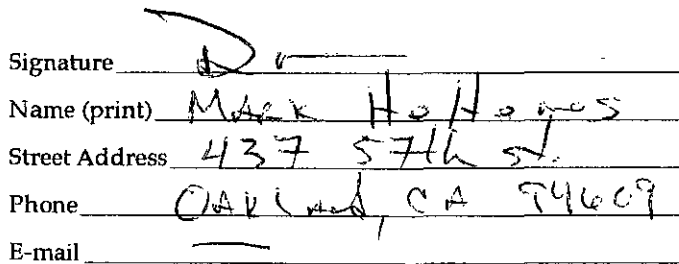 Signature
Name (print) Mark
Street Address 437 57th st.
Phone Oakland, CA 94609
E-mail